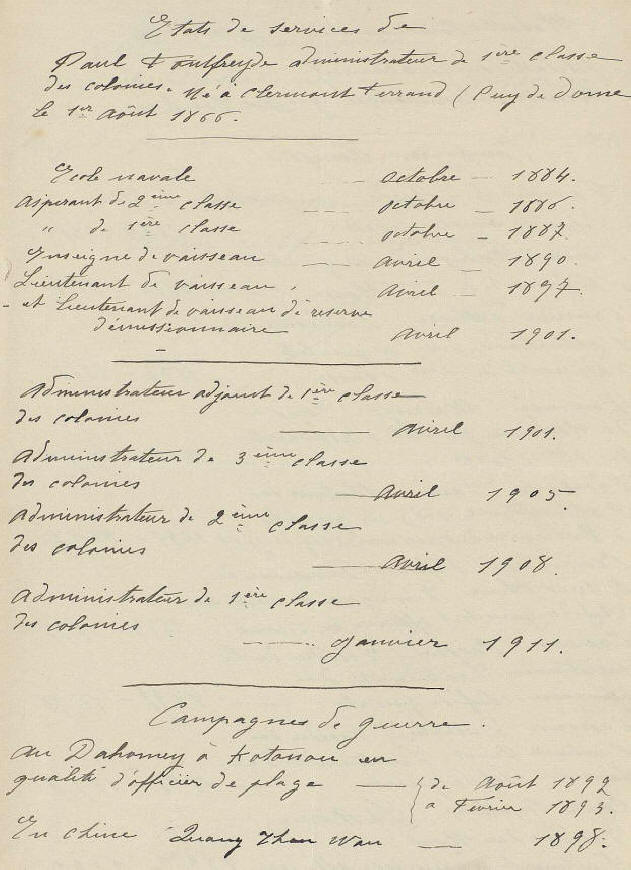 Etats de services de
Paul Foulfreyde administrateur de 1ère classe
des colonies. Né à Clermont Ferrand (Puy de Dome
le 1er Août 1866.
Ecole navale octobre 1884.
Aspirant de 2ème classe octobre 1886.
" de 1ère classe octobre 1887.
Enseigne de vaisseau avril 1890.
Lieutenant de vaisseau avril 1897.
et Lieutenant de vaisseau de réserve
démissionnaire avril 1901.
Administrateur adjoint de 1ère classe
des colonies avril 1901.
Administrateur de 3ème classe
des colonies avril 1905.
Administrateur de 2ème classe
des colonies avril 1908.
Administrateur de 1ère classe
des colonies janvier 1911.
Campagnes de guerre.
Au Dahomey à Kotonou en
qualité d'officier de plage de Août 1892
a Février 1893.
En Chine Quang Tchou Wan 1898.